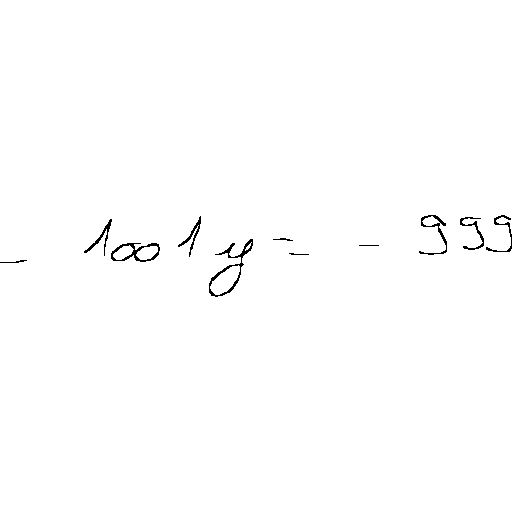 - 1001y = - 999